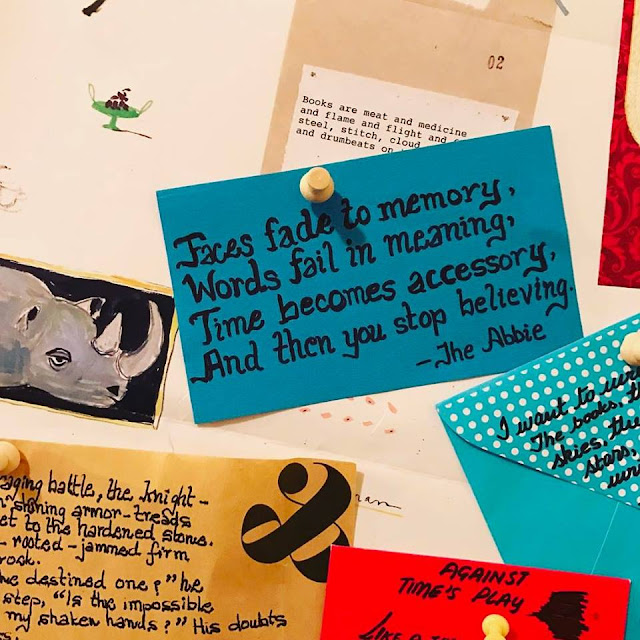 02
Books are meat and medicine
and flame and flight and
steel, stitch, cloud
and drumbeats on
Faces fade to memory,
Words fail in meaning,
Time becomes accessory,
And then you stop believing.
—The Abbie
I want to
The books, th
skies, the
stars,
aging battle, the knight—
n shining armor-treads
et to the hardened stone.
-rooted-jammed firm
rock.
he destined one?" he
step, "Is the impossible
my shaken hands?" His doubts
&
AGAINST
TIME'S PLAY
LIKE A